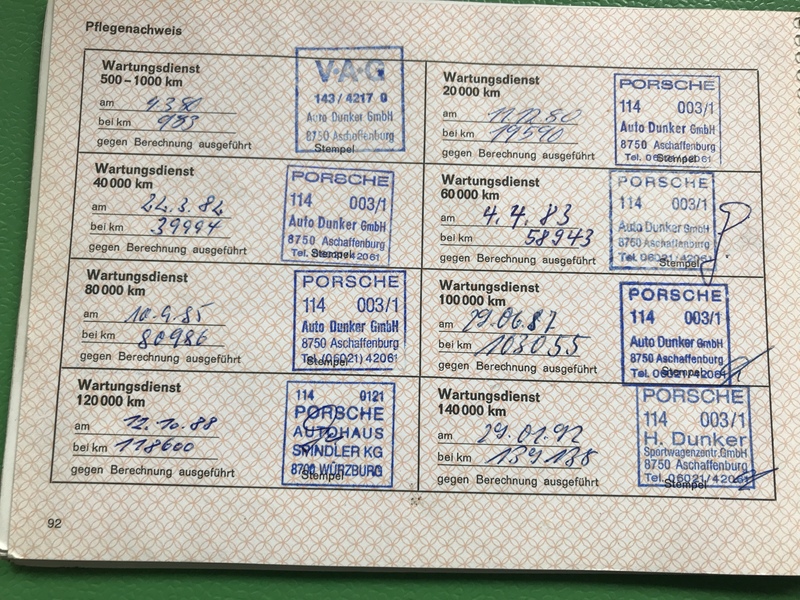 Pflegenachweis
Wartungsdienst
500–1000 km
am 4.3.80
bei km 953
gegen Berechnung ausgeführt
V·A·G
143/4217 0
Auto Dunker GmbH
8750 Aschaffenburg
Stempel
Wartungsdienst
20 000 km
am 11.12.80
bei km 19590
gegen Berechnung ausgeführt
PORSCHE
114 003/1
Auto Dunker GmbH
8750 Aschaffenburg
Tel. 06021/42061
Stempel
Wartungsdienst
40 000 km
am 22.3.82
bei km 39994
gegen Berechnung ausgeführt
PORSCHE
114 003/1
Auto Dunker GmbH
8750 Aschaffenburg
Tel. 06021/42061
Stempel
Wartungsdienst
60 000 km
am 4.4.83
bei km 58943
gegen Berechnung ausgeführt
PORSCHE
114 003/1
Auto Dunker GmbH
8750 Aschaffenburg
Tel. 06021/42061
Stempel
Wartungsdienst
80 000 km
am 10.9.85
bei km 80986
gegen Berechnung ausgeführt
PORSCHE
114 003/1
Auto Dunker GmbH
8750 Aschaffenburg
Tel. (06021) 42061
Stempel
Wartungsdienst
100 000 km
am 29.06.87
bei km 103055
gegen Berechnung ausgeführt
PORSCHE
114 003/1
Auto Dunker GmbH
8750 Aschaffenburg
Tel. 06021/42061
Stempel
Wartungsdienst
120 000 km
am 12.10.88
bei km 118600
gegen Berechnung ausgeführt
114 0121
PORSCHE
AUTOHAUS
SPINDLER KG
8700 WÜRZBURG
Stempel
Wartungsdienst
140 000 km
am 29.01.92
bei km 139138
gegen Berechnung ausgeführt
PORSCHE
114 003/1
H. Dunker
Sportwagenzentr. GmbH
8750 Aschaffenburg
Tel. 06021/42061
Stempel
92